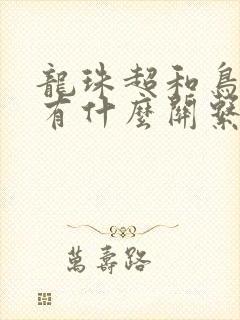 龍珠超和鳥
有什麼關繫
萬壽路